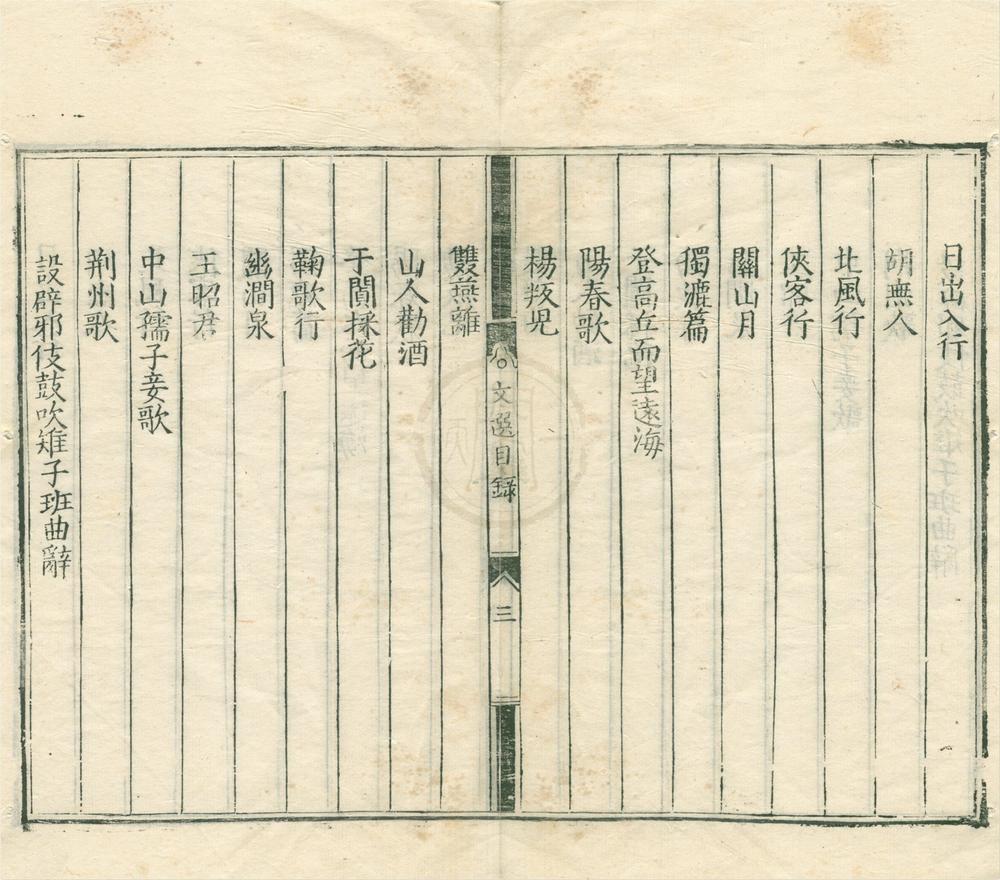 日出入行
胡無人
北風行
俠客行
關山月
獨漉篇
登高丘而望遠海
陽春歌
楊叛児
文選目錄
三
雙燕離
山人勸酒
于闐採花
鞠歌行
幽澗泉
王昭君
中山孺子妾歌
荆州歌
設辟邪伎鼓吹雉子班曲辭